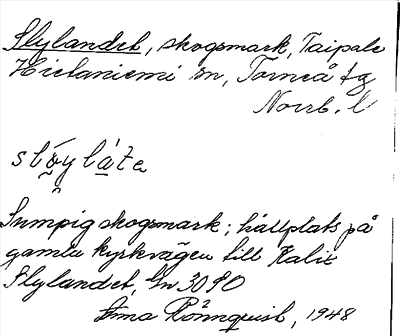 Slylandet, skogsmark, Taipale
Hietaniemi sn, Torneå tg
Norrb. l
slóyláte
Sumpig skogsmark; hållplats på
gamla kyrkvägen till Kalix
Slylandet, Gn 3090
Anna Rönnquist, 1948